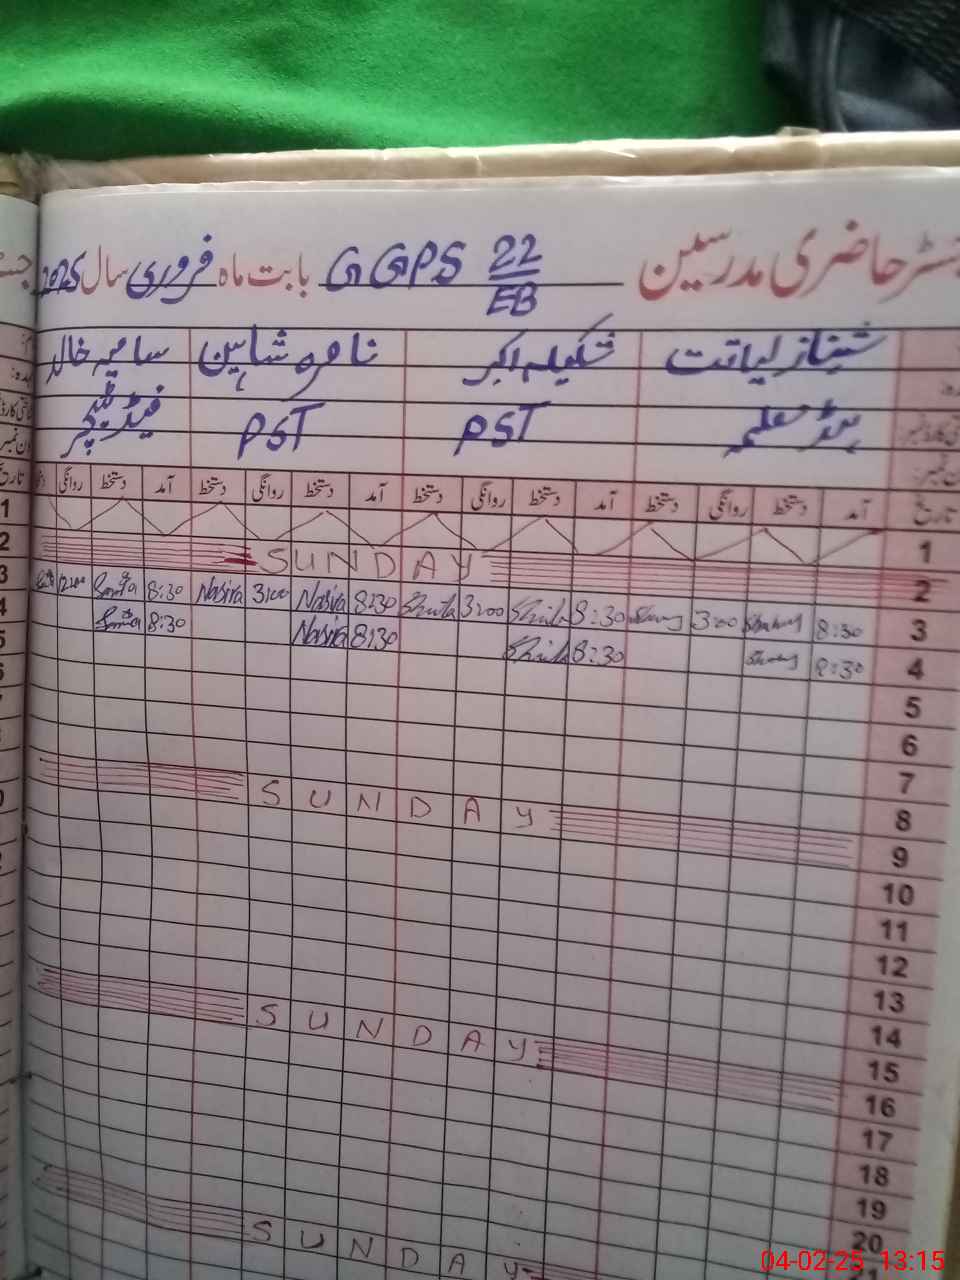 رجسٹر حاضری مدرسین GGPS 22/EB بابت ماہ فروری سال 2025
شہناز لیاقت شکیلہ اکبر ناصرہ شاہین سامیہ خالد
ہیڈ معلمہ PST PST فیڈ ٹیچر
تاریخ آمد دستخط روانگی دستخط آمد دستخط روانگی دستخط آمد دستخط روانگی دستخط آمد دستخط روانگی
1
2 SUNDAY
3 8:30 3:00 8:30 3:00 8:30 Nasira 3:00 Nasira 8:30 12:00
4 8:30 8:30 8:30 Nasira 8:30
5
6
7
8
9 SUNDAY
10
11
12
13
14
15
16 SUNDAY
17
18
19
20
SUNDAY
04-02-25 13:15